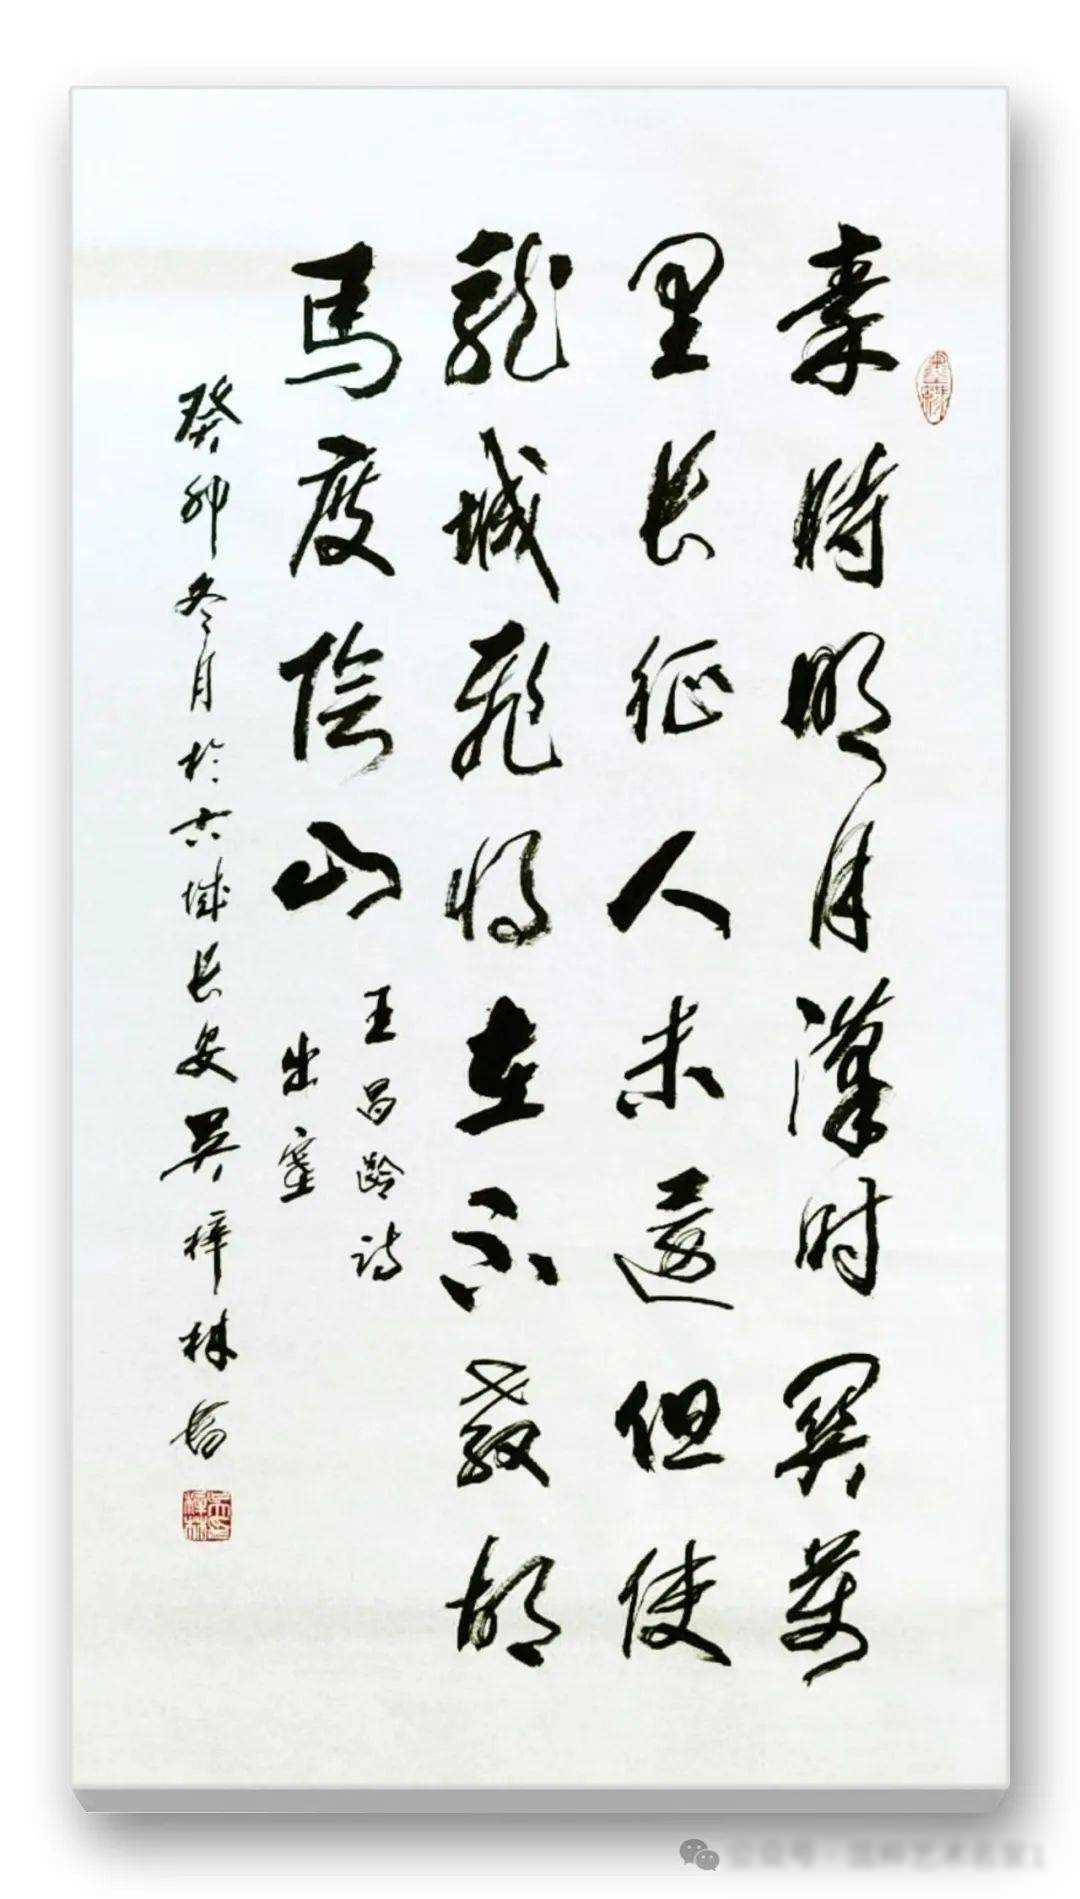 秦時明月漢时關萬
里長征人未還但使
龍城飛将在不教胡
馬度陰山
王昌齡诗
出塞
癸卯冬月於古城長安吴梓林書